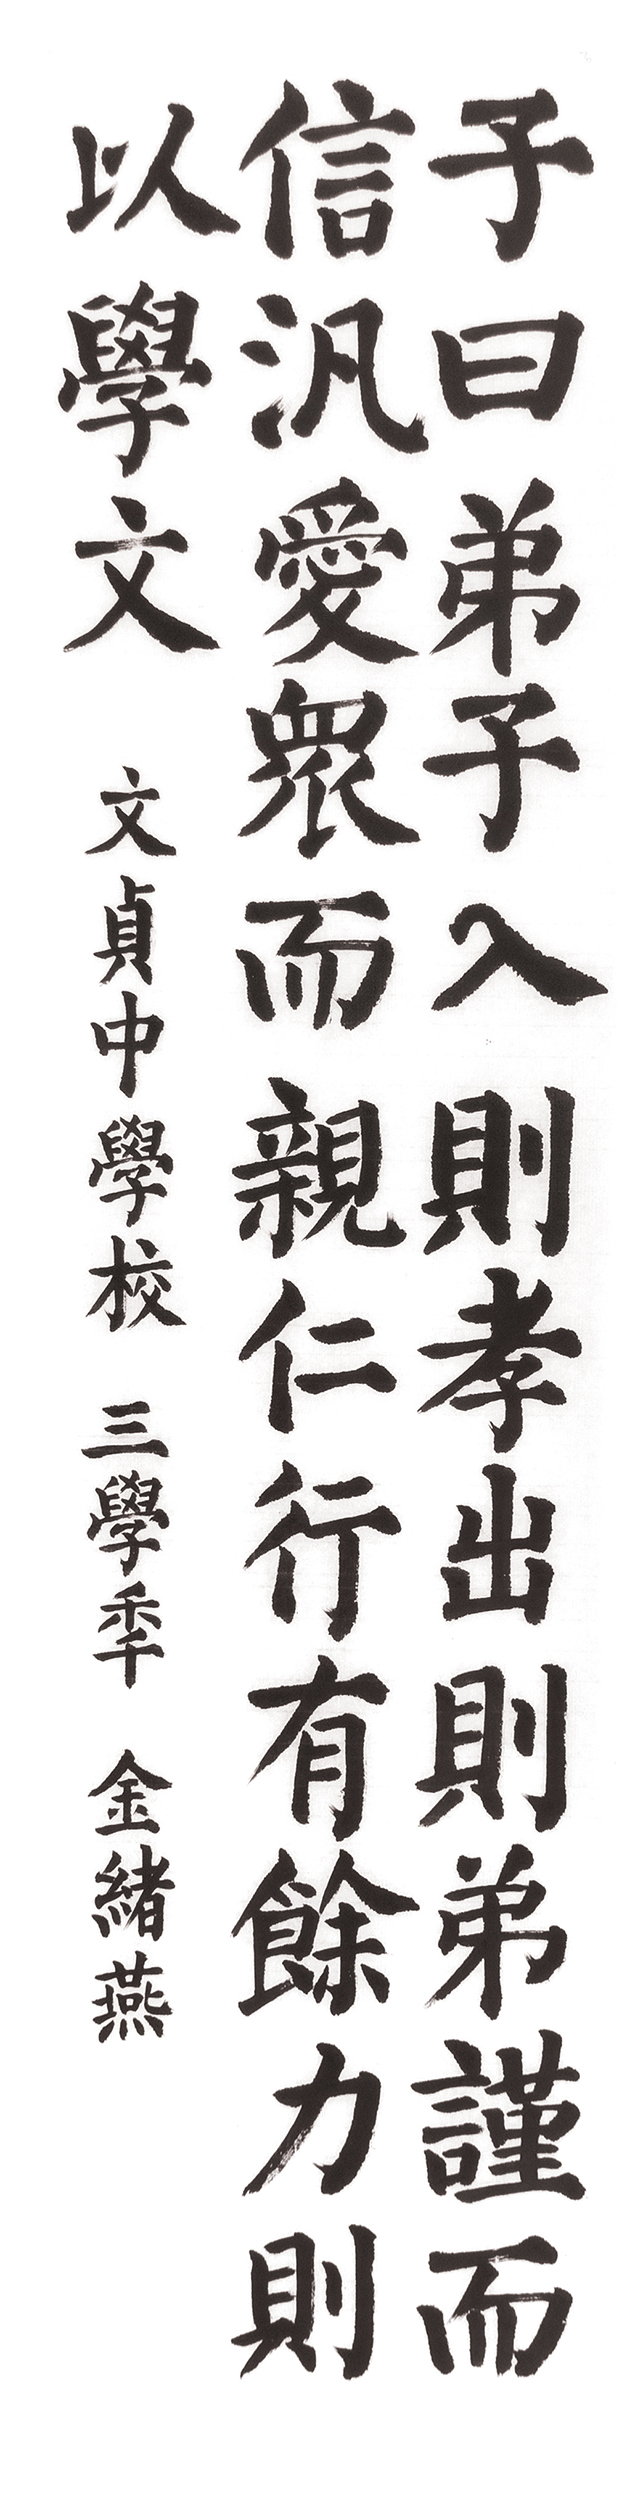 子曰弟子入則孝出則弟謹而
信汎愛衆而親仁行有餘力則
以學文
文貞中學校 三學秊 金緖燕